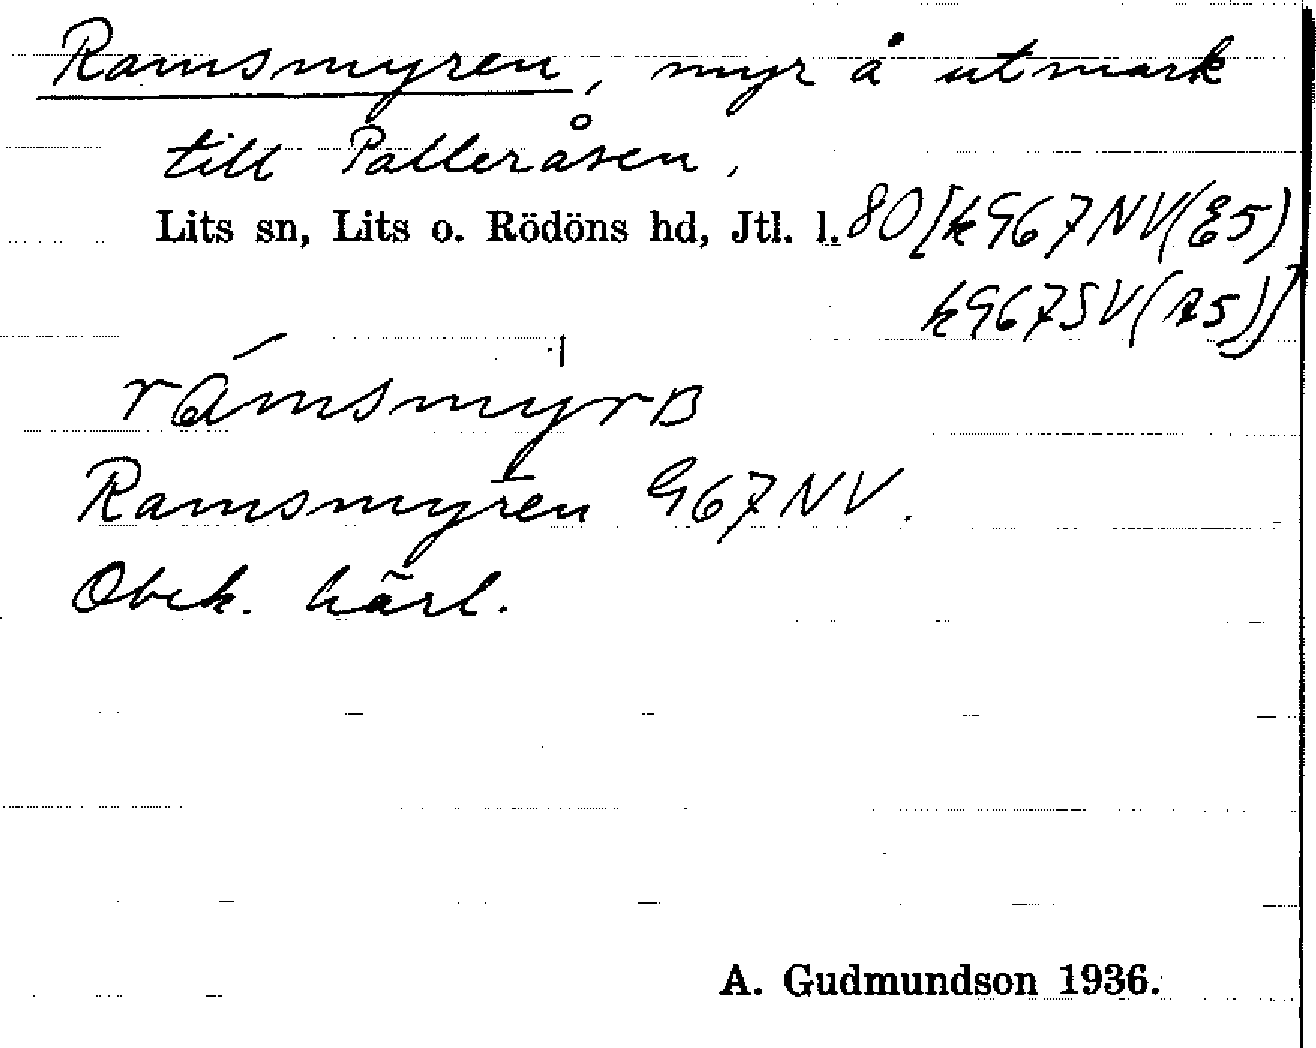 Ramsmyren, myr å utmark
till Palleråsen,
Lits sn, Lits o. Rödöns hd, Jtl. l. 80 [k967NV(E5)
k967SV(A5)]
rámsmyrʙ
Ramsmyren 967NV.
Obek. härl.
A. Gudmundson 1936.